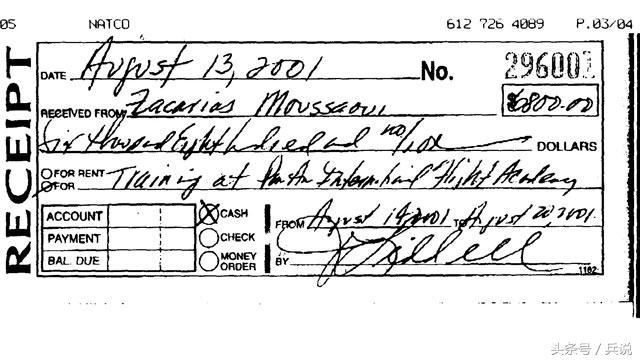 05 NATCO 612 726 4089 P.03/04
RECEIPT
DATE August 13, 2001 No. 296001
RECEIVED FROM Zacarias Moussaoui $6800.00
Six thousand Eight hundred and no/100 DOLLARS
FOR RENT
FOR Training at Pan Am International Flight Academy
ACCOUNT CASH FROM August 14 2001 TO August 20, 2001
PAYMENT CHECK
BAL. DUE MONEY ORDER BY
1182
头条号 / 兵说